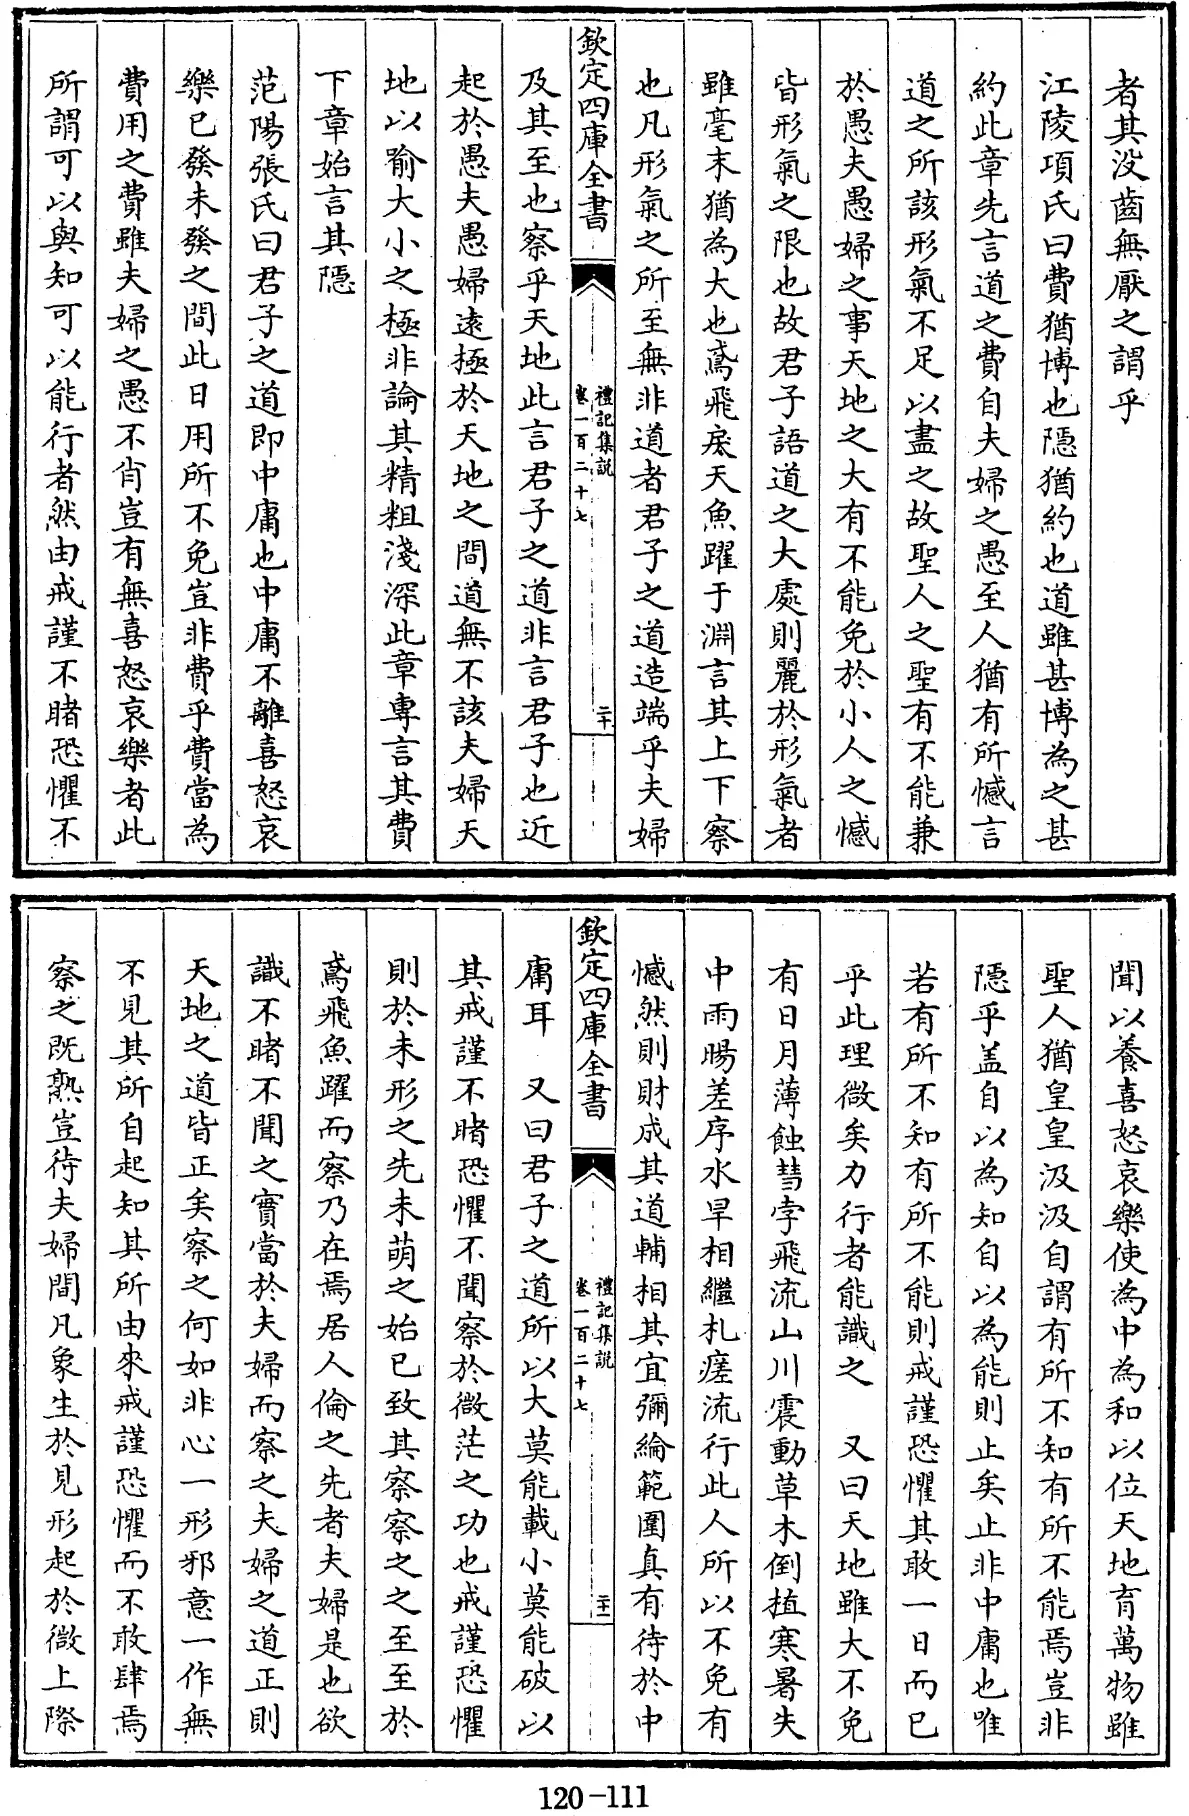 者其没齒無厭之謂乎
江陵項氏曰費猶博也隱猶約也道雖甚博為之甚
約此章先言道之費自夫婦之愚至人猶有所憾言
道之所該形氣不足以盡之故聖人之聖有不能兼
於愚夫愚婦之事天地之大有不能免於小人之憾
皆形氣之限也故君子語道之大處則麗於形氣者
雖毫末猶為大也鳶飛戾天魚躍于淵言其上下察
也凡形氣之所至無非道者君子之道造端乎夫婦
欽定四庫全書
禮記集説
卷一百二十七
二十
及其至也察乎天地此言君子之道非言君子也近
起於愚夫愚婦遠極於天地之間道無不該夫婦天
地以喻大小之極非論其精粗淺深此章專言其費
下章始言其隱
范陽張氏曰君子之道即中庸也中庸不離喜怒哀
樂已發未發之間此日用所不免豈非費乎費當為
費用之費雖夫婦之愚不肖豈有無喜怒哀樂者此
所謂可以與知可以能行者然由戒謹不睹恐懼不
聞以養喜怒哀樂使為中為和以位天地育萬物雖
聖人猶皇皇汲汲自謂有所不知有所不能焉豈非
隱乎盖自以為知自以為能則止矣止非中庸也唯
若有所不知有所不能則戒謹恐懼其敢一日而已
乎此理微矣力行者能識之　又曰天地雖大不免
有日月薄蝕彗孛飛流山川震動草木倒植寒暑失
中雨暘差序水旱相繼札瘥流行此人所以不免有
憾然則財成其道輔相其宜彌綸範圍真有待於中
欽定四庫全書
禮記集説
卷一百二十七
二十一
庸耳　又曰君子之道所以大莫能載小莫能破以
其戒謹不睹恐懼不聞察於微茫之功也戒謹恐懼
則於未形之先未萌之始已致其察察之之至至於
鳶飛魚躍而察乃在焉居人倫之先者夫婦是也欲
識不睹不聞之實當於夫婦而察之夫婦之道正則
天地之道皆正矣察之何如非心一形邪意一作無
不見其所自起知其所由來戒謹恐懼而不敢肆焉
察之既熟豈待夫婦間凡象生於見形起於微上際
120-111